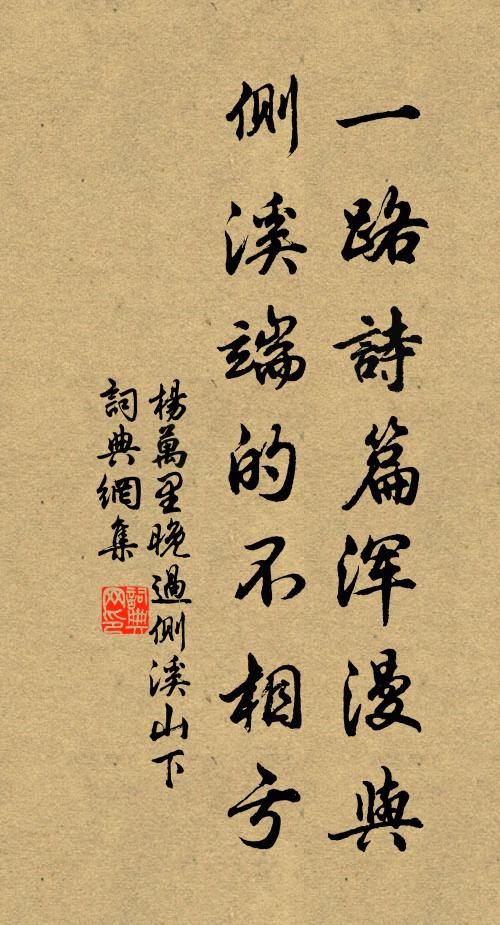 一路詩篇浑漫與
側溪端的不相亏
楊萬里晚過側溪山下
詞典網集
詞典
网印